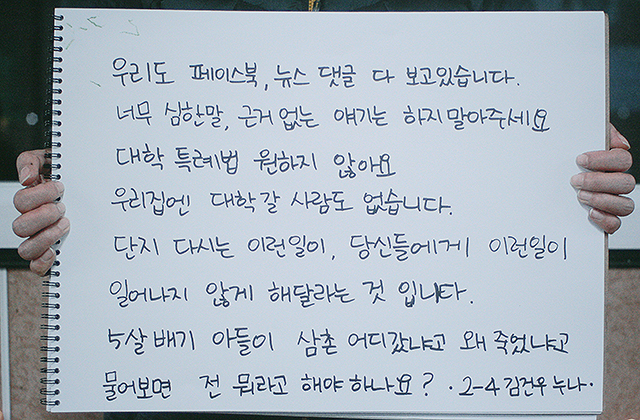 우리도 페이스북, 뉴스 댓글 다 보고있습니다.
너무 심한말, 근거 없는 얘기는 하지 말아주세요
대학 특례법 원하지 않아요
우리집엔 대학 갈 사람도 없습니다.
단지 다시는 이런일이, 당신들에게 이런일이
일어나지 않게 해달라는 것 입니다.
5살 배기 아들이 삼촌 어디갔냐고 왜 죽었냐고
물어보면 전 뭐라고 해야 하나요? · 2-4 김건우 누나 ·